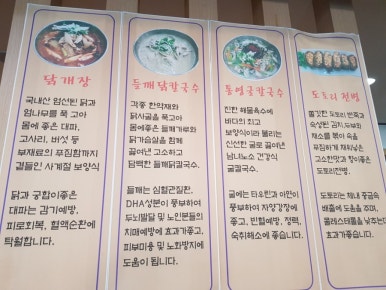 닭개장
국내산 엄선된 닭과
엄나무를 푹 고아
몸에좋은 대파,
고사리, 버섯 등
부재료의 푸짐함까지
곁들인 사계절 보양식
닭과 궁합이좋은
대파는 감기예방,
피로회복, 혈액순환에
탁월합니다.
들깨닭칼국수
각종 한약재와
닭사골을 푹고아
몸에좋은 들깨가루와
닭가슴살을 함께
끓여낸 고소하고
담백한 들깨닭칼국수.
들깨는 심혈관질환,
DHA성분이 풍부하여
두뇌발달 및 노인분들의
치매예방에 효과가좋고,
피부미용 및 노화방지에
도움이 됩니다.
통영굴칼국수
진한 해물육수에
바다의 최고
보양식이라 불리는
신선한 굴로 끓여낸
남녀노소 건강식
굴칼국수.
굴에는 타우린과 아연이
풍부하여 자양강장에
좋고, 빈혈예방, 정력,
숙취해소에 좋습니다.
도토리전병
쫄깃한 도토리 반죽과
숙성된 김치,두부와
채소를 볶아 속을
푸짐하게 채워넣은
고소한맛과 향이좋은
도토리전병.
도토리는 체내 중금속
배출에 도움을 주며,
콜레스테롤을 낮추는데
효과가좋습니다.